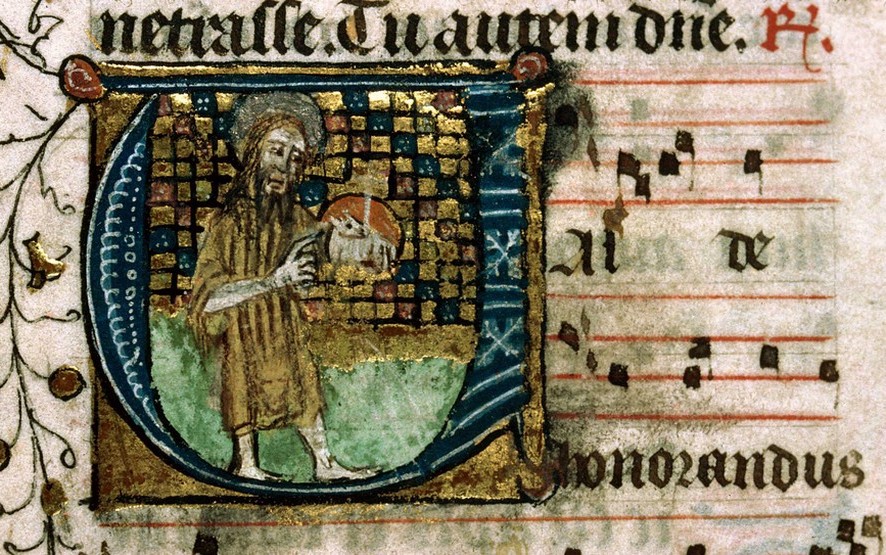 netrasse. Tu autem dñe. R.
V
Al de
honorandus